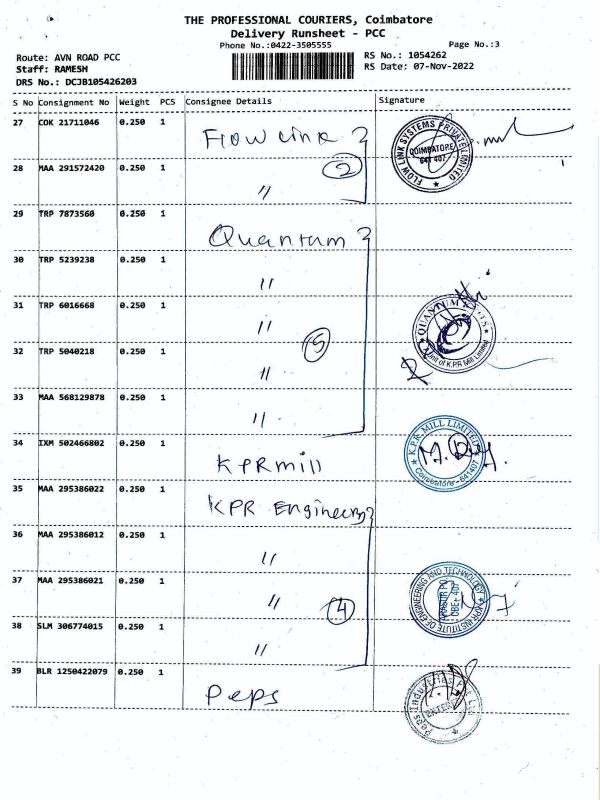 THE PROFESSIONAL COURIERS, Coimbatore
Delivery Runsheet - PCC
Phone No.:0422-3505555
Page No.:3
Route: AVN ROAD PCC
RS No.: 1054262
Staff: RAMESH
RS Date: 07-Nov-2022
DRS No.: DCJB105426203
S No Consignment No Weight PCS Consignee Details Signature
27 COK 21711046 0.250 1 Flow Link
FLOW LINK SYSTEMS PRIVATE LIMITED
COIMBATORE
641 407
28 MAA 291572420 0.250 1 〃
2
29 TRP 7873560 0.250 1 Quantum
30 TRP 5239238 0.250 1 〃
31 TRP 6016668 0.250 1 〃
QUANTUM
Unit of K.P.R Mill Limited
32 TRP 5040218 0.250 1 〃
5
33 MAA 568129878 0.250 1 〃
34 IXM 502466802 0.250 1 KPR mill
K.P.R. MILL LIMITED
Coimbatore - 641407
35 MAA 295386022 0.250 1 KPR Engineering
36 MAA 295386012 0.250 1 〃
37 MAA 295386021 0.250 1 〃
4
KPR INSTITUTE OF ENGINEERING AND TECHNOLOGY
38 SLM 306774015 0.250 1 〃
39 BLR 1250422079 0.250 1 Peps
Peps Industries